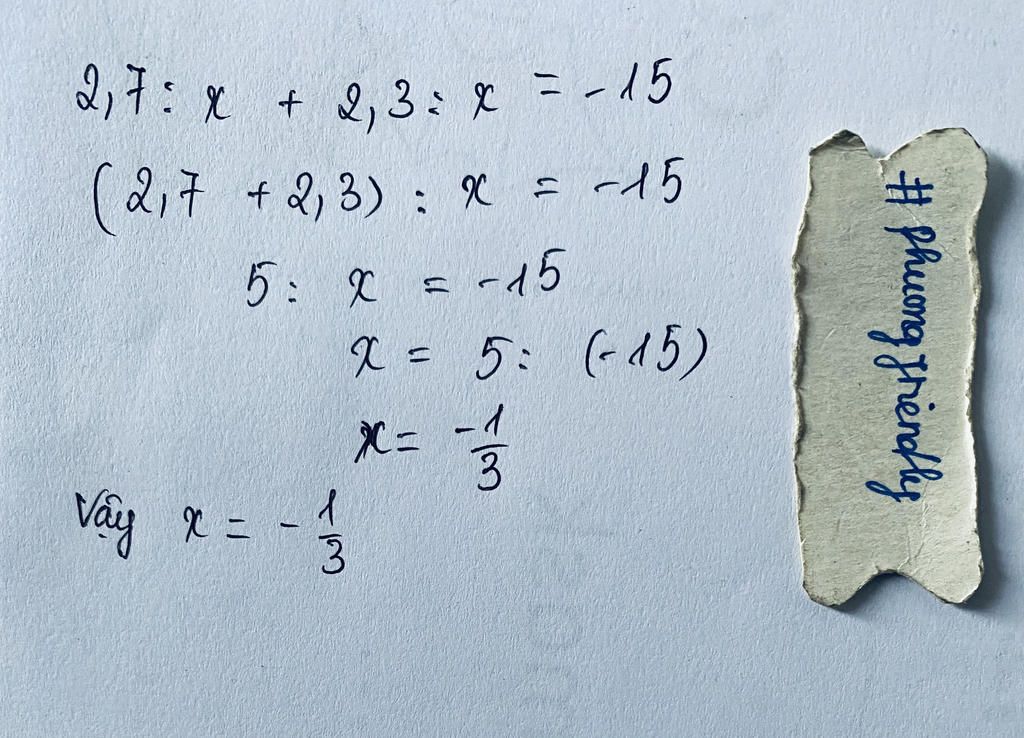 2,7 : x + 2,3 : x = -15
(2,7 + 2,3) : x = -15
5 : x = -15
x = 5 : (-15)
x = -1/3
Vậy x = -1/3
# phuongfriendly